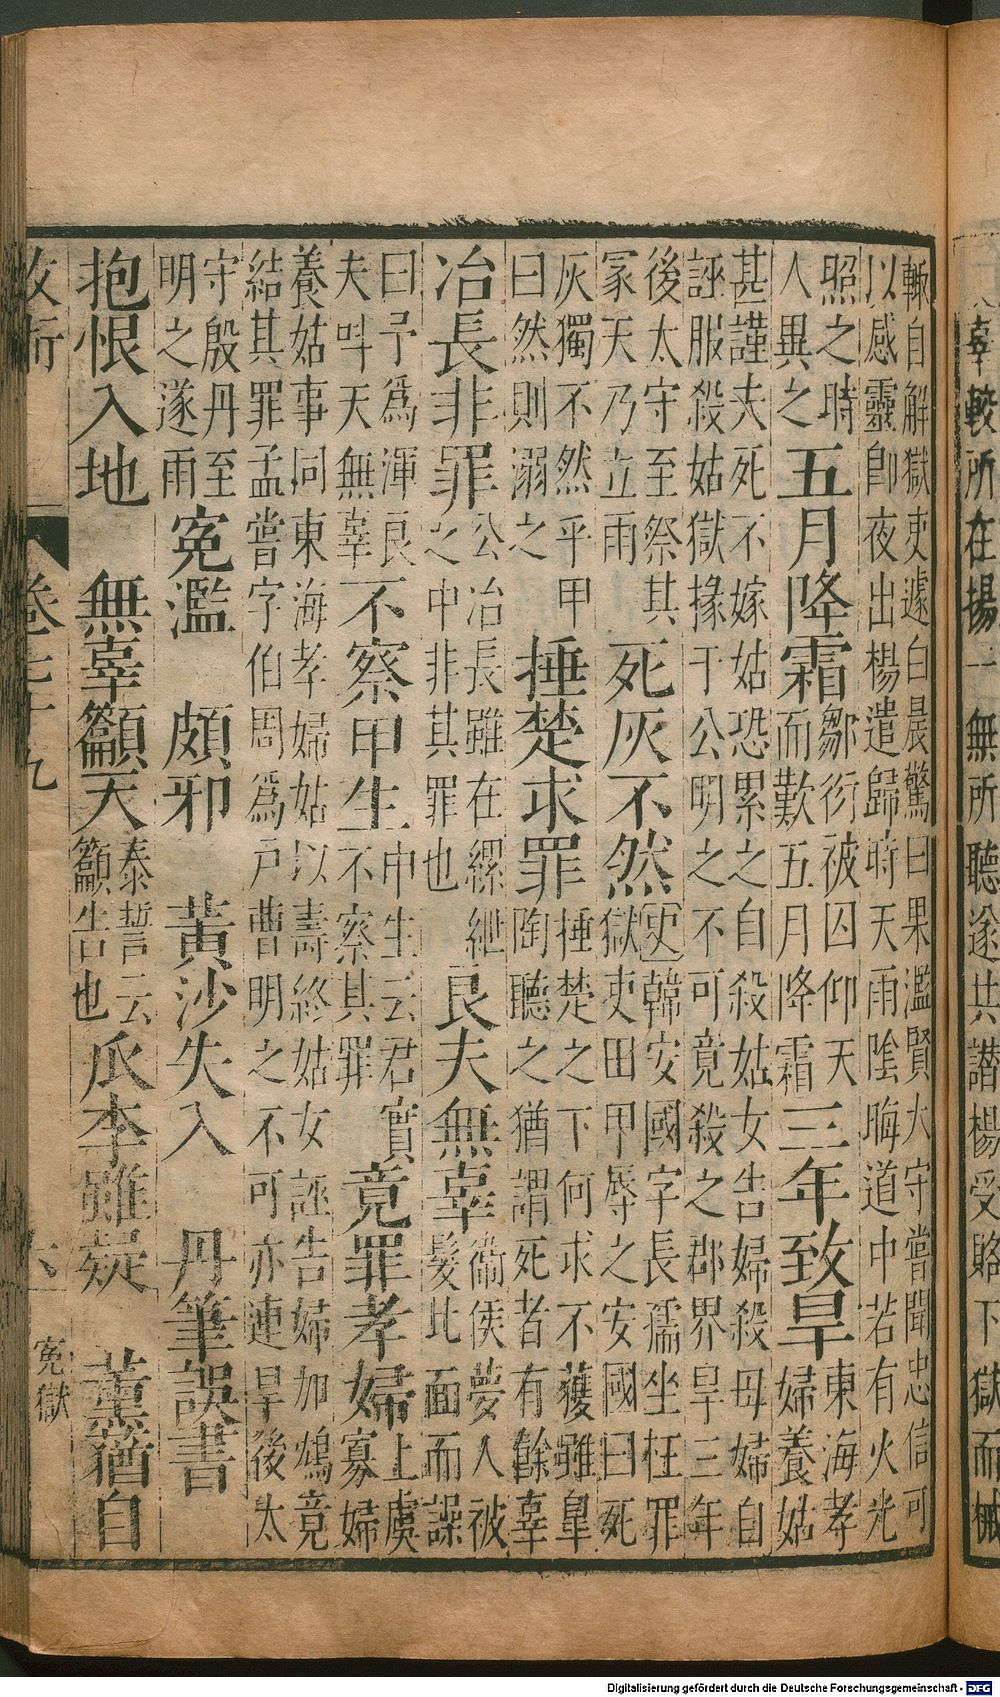 辜較所在揚一無所聽遂共譖楊受賂下獄而械
輙自解獄吏遽白晨驚曰果濫賢大守嘗聞忠信可
以感靈卽夜出楊遣歸時天雨陰晦道中若有火光
照之時
人異之
五月降霜
鄒衍被囚仰天
而歎五月降霜
三年致旱
東海孝
婦養姑
甚謹夫死不嫁姑恐累之自殺姑女告婦殺母婦自
誣服殺姑獄掾于公明之不可竟殺之郡界旱三年
後太守至祭其
冢天乃立雨
死灰不然
史韓安國字長孺坐枉罪
獄吏田甲辱之安國曰死
灰獨不然乎甲
曰然則溺之
捶楚求罪
捶楚之下何求不獲雖皐
陶聽之猶謂死者有餘辜
冶長非罪
公冶長雖在縲絏
之中非其罪也
良夫無辜
衞侯夢人被
髮北面而譟
曰予爲渾良
夫呌天無辜
不察申生
申生云君實
不察其罪
竟罪孝婦
上虞
寡婦
養姑事同東海孝婦姑以壽終姑女誣告婦加鴆竟
結其罪孟嘗字伯周爲戶曹明之不可亦連旱後太
守殷丹至
明之遂雨
寃濫　頗邪　黃沙失入　丹筆誤書
抱恨入地　無辜籲天
泰誓云
籲告也
瓜李雖疑　薰蕕自
卷七十九
六
寃獄
Digitalisierung gefördert durch die Deutsche Forschungsgemeinschaft - DFG